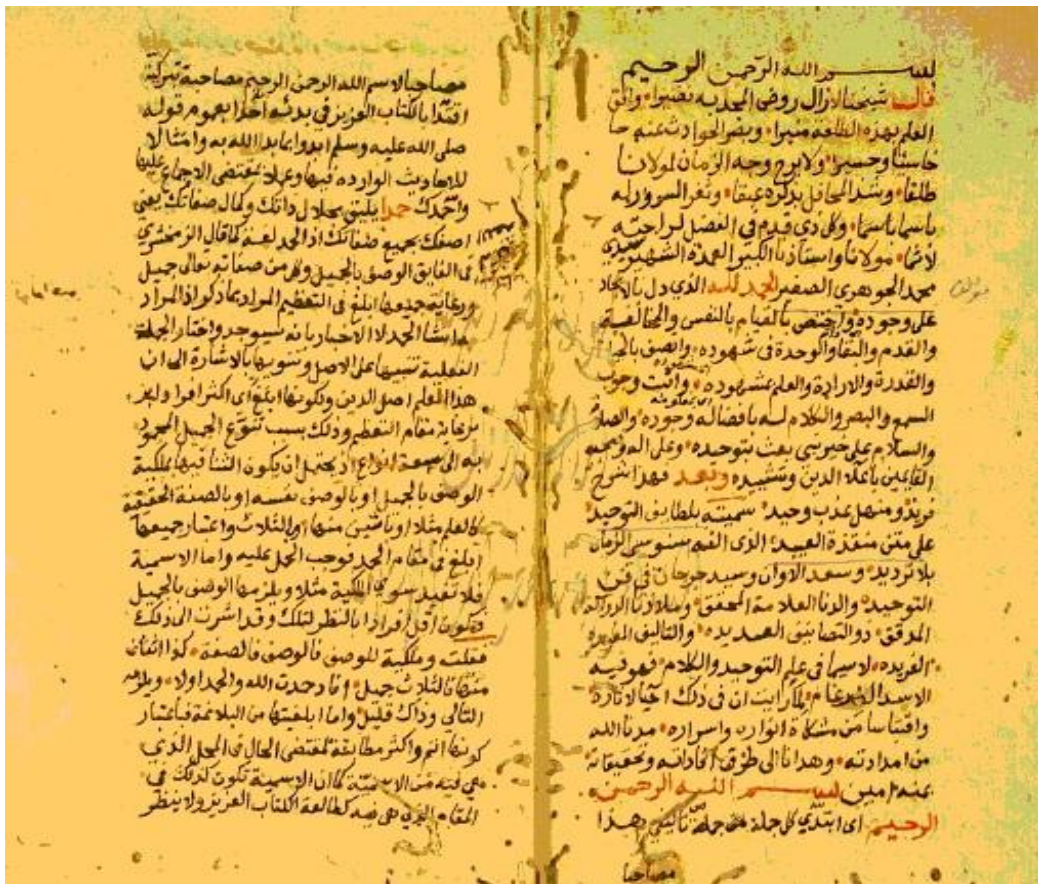 بسم الله الرحمن الرحيم
قال شيخنا لا زال روض المجد به نضيرا وافق
العلم بهذه الطلعة منيرا وبصر الحوادث عنه
خاسئا وحسيرا ولا برح وجه الزمان لمولانا
طلقا وشذا المحافل بذكره عبقا وثغر السرور له
باسما وكل ذي قدم في الفضل لراحته
لاثما مولانا واستاذنا الكبير العمدة الشهير سيدي
محمد الجوهري الصغير الحمد لله الذي دل بالايجاد
على وجوده واختص بالقيام بالنفس والمخالفة
والقدم والبقا والوحدة في شهوده واتصف بالحيا
والقدرة والارادة والعلم بمشهوده واثبت وجوب
السمع والبصر والكلام له بافضاله وجوده والصلاة
والسلام على خير نبي بعث بتوحيده وعلى اله وصحبه
القائمين باعلاء الدين وتشييده وبعد فهذا شرح
فريد ومنهل عذب وحيد سميته بلطايف التوحيد
على متن منقذة العبيد الذي الفه سنوسي الزمان
بلا ترديد وسعد الاوان وسيد جرجان في فن
التوحيد والدنا العلامة المحقق وملاذنا الدراكة
المدقق ذو التصانيف العديده والتآليف المفيده
الفريده لاسيما في علم التوحيد والكلام فهو فيه
الاسد الضرغام رايت ان في ذلك احيا لاثاره
واقتباسا من مشكاة انواره واسراره مدنا الله
من امداداته وهدانا الى طرق افاداته وتحقيقاته
عنه امين بسم الله الرحمن
الرحيم اي ابتدي كل جملة من جملة تاليفي هذا
مصاحبا
مصاحبا لاسم الله الرحمن الرحيم مصاحبة تبركية
اقتداء بالكتاب العزيز في بدئه اخذا بعموم قوله
صلى الله عليه وسلم ابدوا بما بدا الله به وامتثالا
للاحاديث الواردة فيها وعملا بمقتضى الاجماع عليها
واحمدك حمدا يليق بجلال ذاتك وكمال صفاتك يعني
اصفك بجميع صفاتك اذ الحمد لغة كما قال الزمخشري
في الفايق الوصف بالجميل وكل من صفاته تعالى جميل
ورعاية جميعها ابلغ في التعظيم المراد بما ذكر اذ المراد
انشا الحمد لا الاخبار بانه سيوجد واختار الجملة
الفعلية تنبيها على الاصل وتنويها بالاشارة الى ان
هذا العلم اصل الدين ولكونها ابلغ اي اكثر افرادا
رعاية مقام التعظيم وذلك بسبب تنوع الجميل المحمود
به الى سبعة انواع اذ يحتمل ان يكون الثنا فيها بملكية
الوصف بالجميل او بالوصف نفسه او بالصفة الحقيقة
كالعلم مثلا او باثنين منها او بالثلاث واعتبار جميعها
ابلغ في مقام الحمد فوجب الحمل عليه واما الاسمية
فلا تفيد سوى الملكية مثلا ويلزمها الوصف بالجميل
فتكون اقل افرادا بالنظر لتلك وقد اشرت الى ذلك
فقلت وملكية للوصف فالوصف فالصفة كذا اثنان
منها فالثلاث جميل افاد حمدت الله والحمد اولا ويلزمه
التالي وذاك قليل واما ابلغيتها من البلاغة فباعتبار
كونها اتم واكثر مطابقة لمقتضى الحال في المحل الذي
هي فيه من الاسمية كما ان الاسمية تكون كذلك في
المقام الذي هي فيه كمطالعة الكتاب العزيز ولا ينظر